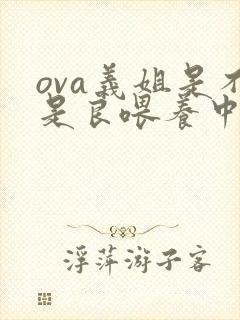 ova义姐是不
是良喂养中
浮萍游子客